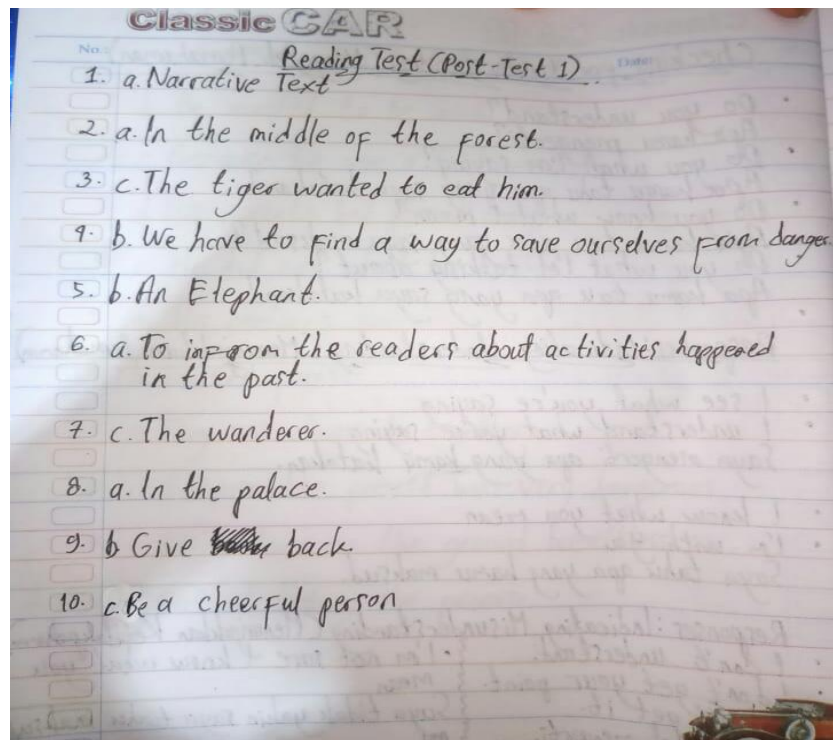 Classic CAR
No.:
Date:
Reading Test (Post-Test 1)
1. a. Narrative Text
2. a. In the middle of the forest.
3. c. The tiger wanted to eat him.
4. b. We have to find a way to save ourselves from danger.
5. b. An Elephant.
6. a. To infrom the readers about activities happened
in the past.
7. c. The wanderer.
8. a. In the palace.
9. b Give back.
10. c. Be a cheerful person